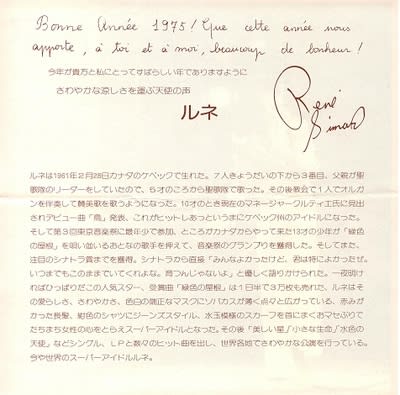 Bonne Année 1975! Que cette année nous
apporte, à toi et à moi, beaucoup de bonheur!
今年が貴方と私にとってすばらしい年でありますように
さわやかな涼しさを運ぶ天使の声
ルネ
René
Simard
ルネは1961年2月28日カナダのケベックで生れた。7人きょうだいの下から3番目、父親が聖
歌隊のリーダーをしていたので、5才のころから聖歌隊で歌った。その後教会で1人でオルガ
ンを伴奏して賛美歌を歌うようになった。10才のとき現在のマネージャークルティエ氏に見出
されデビュー曲「鳥」発表、これがヒットしあっというまにケベック州のアイドルになった。
そして第3回東京音楽祭に最年少で参加、ところがカナダからやって来た13才の少年が「緑色
の屋根」を唄い並いるおとなの歌手を押えて、音楽祭のグランプリを獲得した。そしてまた、
注目のシナトラ賞までを獲得。シナトラから直接「みんなよかったけど、君は特によかったぜ。
いつまでもこのままでいてくれよな。育つんじゃないよ」と優しく語りかけられた。一夜明け
ればひっぱりだこの人気スター、受賞曲「緑色の屋根」は1日半で3万枚も売れた、ルネはそ
の愛らしさ、さわやかさ、色白の端正なマスクにソバカスが薄く点々と広がっている、赤みが
かった長髪、紺色のシャツにジーンズスタイル、水玉模様のスカーフを首にまくおマセぶりで
たちまち女性の心をとらえスーパーアイドルとなった。その後「美しい星」「小さな生命」「水色の
天使」などシングル、LPと数々のヒット曲を出し、世界各地でさわやかな公演を行っている。
今や世界のスーパーアイドルルネ。